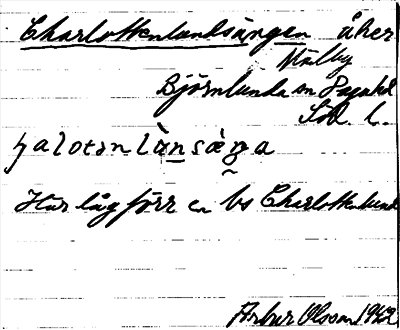 Charlottenlundsängen åker
Valby
Björnlunda sn Daga hd
Söd. l.
Här låg förr en bs Charlottenlund
Artur Olsson 1942